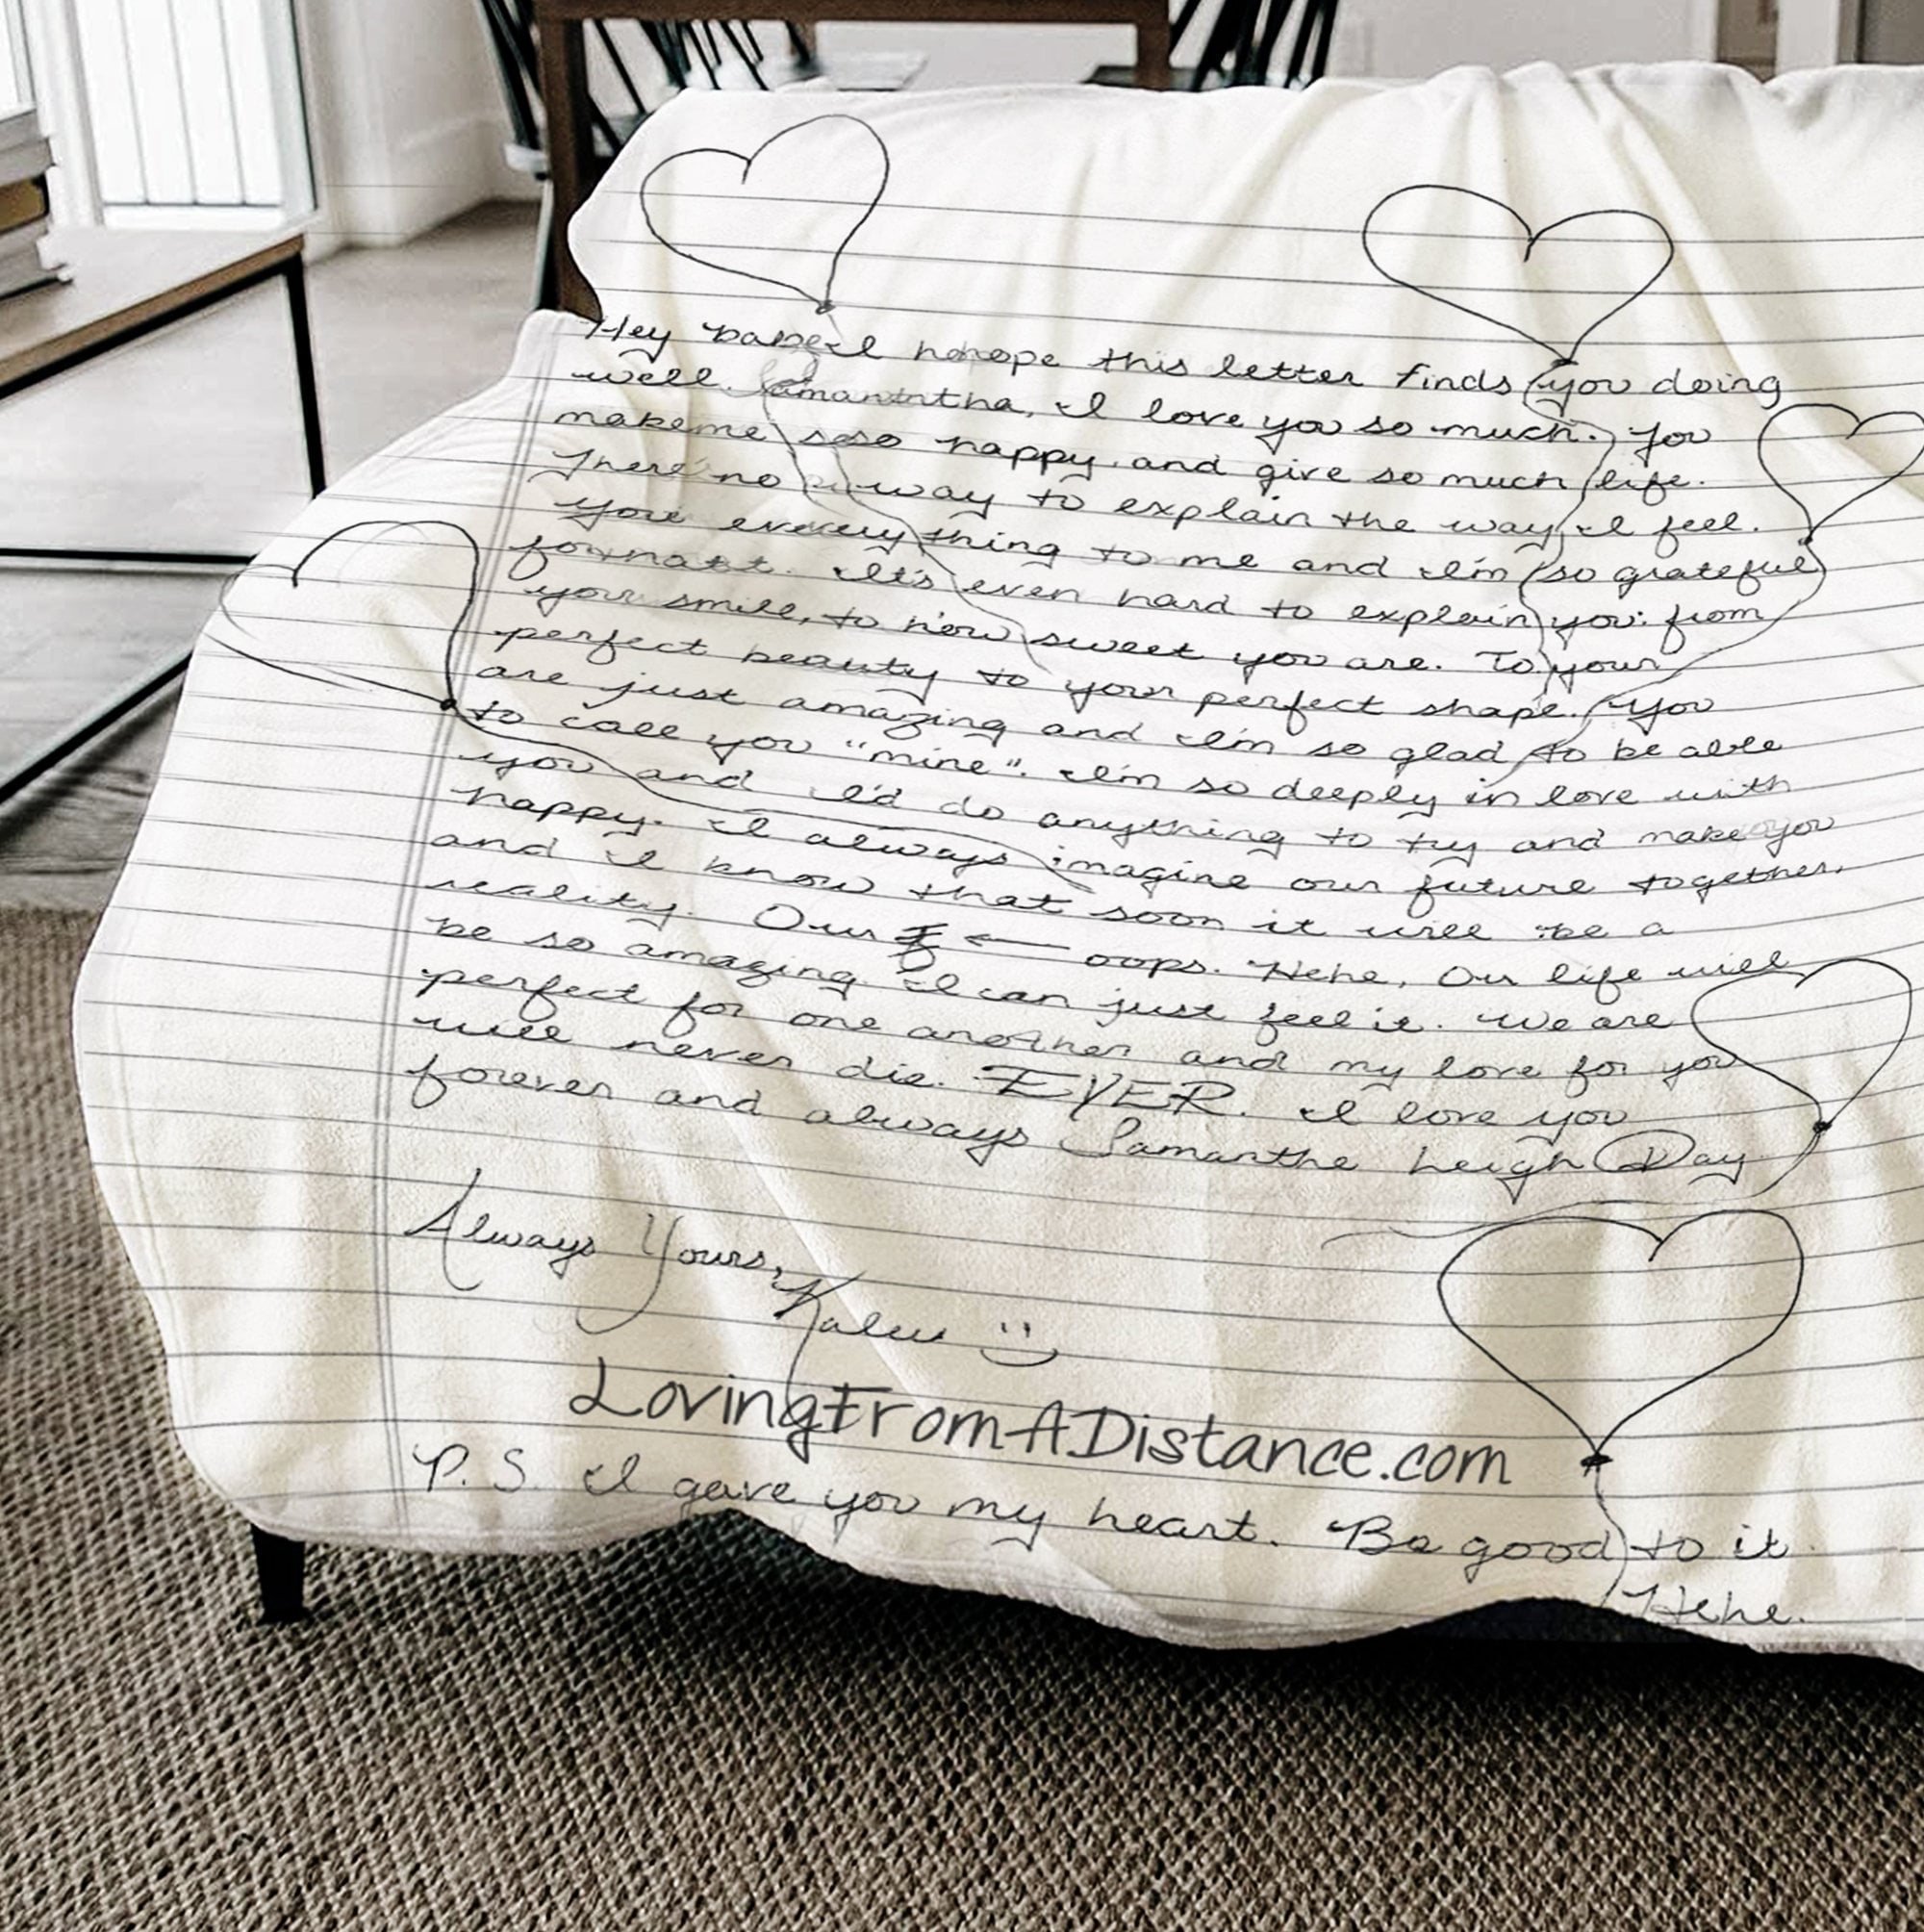 Hey babe I hope this letter finds you doing
well. Samantha, I love you so much. You
make me so happy and give so much life.
There no way to explain the way I feel.
You everything to me and I'm so grateful
for that. It's even hard to explain you: from
your smile, to how sweet you are. To your
perfect beauty to your perfect shape. You
are just amazing and I'm so glad to be able
to call you "mine". I'm so deeply in love with
you and I'd do anything to try and make you
happy. I always imagine our future together,
and I know that soon it will be a
reality. Our ← oops. Hehe, Our life will
be so amazing. I can just feel it. We are
perfect for one another and my love for you
will never die. EVER. I love you
forever and always Samantha Leigh Day
Always Yours,
:)
LovingFromADistance.com
P.S. I gave you my heart. Be good to it.
Hehe.